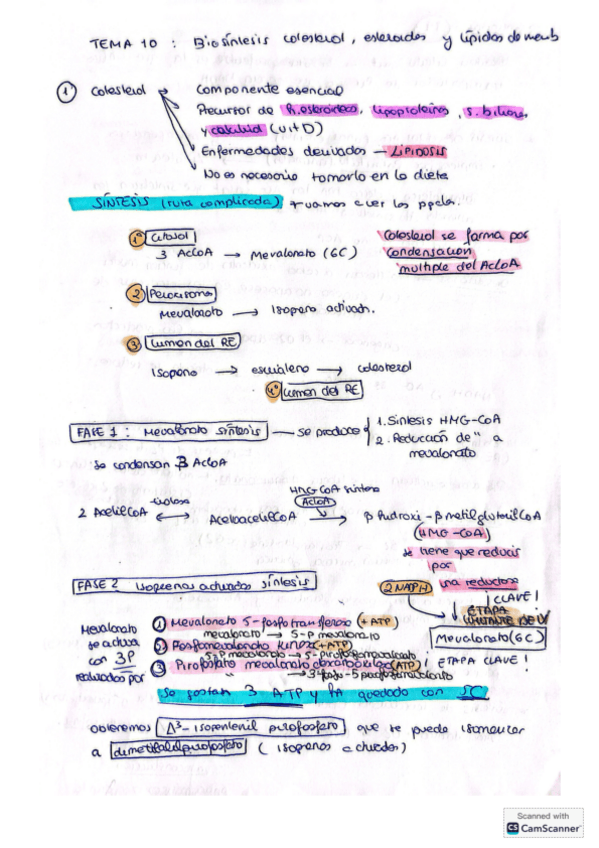 TEMA 10 : Biosíntesis colesterol, esteroides y lípidos de memb
1 Colesterol → Componente esencial
Precursor de H. esteroideas, lipoproteínas, s. biliares
y calcitriol (vit D)
Enfermedades derivadas — LIPIDOSIS
No es necesario tomarlo en la dieta
SÍNTESIS (ruta complicada) + vamos a ver los ppales.
1º Citosol
3 AcCoA → Mevalonato (6C)
Colesterol se forma por
condensación
múltiple del AcCoA
2 Peroxisoma
Mevalonato → Isopreno activado.
3 Lumen del RE
Isopreno → escualeno → colesterol
4º Lumen del RE
FASE 1 : Mevalonato síntesis — se produce
1. Síntesis HMG-CoA
2. Reducción de " a
mevalonato
Se condensan 3 AcCoA
tiolasa
HMG-CoA sintasa
AcCoA
2 AcetilCoA ↔ AcetoacetilCoA → β hidroxi-β metilglutarilCoA
(HMG-CoA)
tiene que reducir
por
una reductasa
FASE 2 Isoprenos activados síntesis
2 NADPH
¡CLAVE!
ETAPA
Mevalonato (6C)
Mevalonato
se activa
con 3P
realizados por
1 Mevalonato 5-fosfotransferasa (+ATP)
mevalonato → 5-P mevalonato
2 Fosfomevalonato kinasa (+ATP)
5P mevalonato → 5-pirofosfomevalonato
3 Pirofosfato mevalonato descarboxilasa (ATP) ¡ETAPA CLAVE!
" → 3 fosfo-5 pirofosfomevalonato
Se gastan 3 ATP y ha quedado con 5C
obtenemos Δ³-isopentenil pirofosfato, que se puede isomerizar
a dimetilalilpirofosfato (isoprenos activados)
Scanned with
CS CamScanner